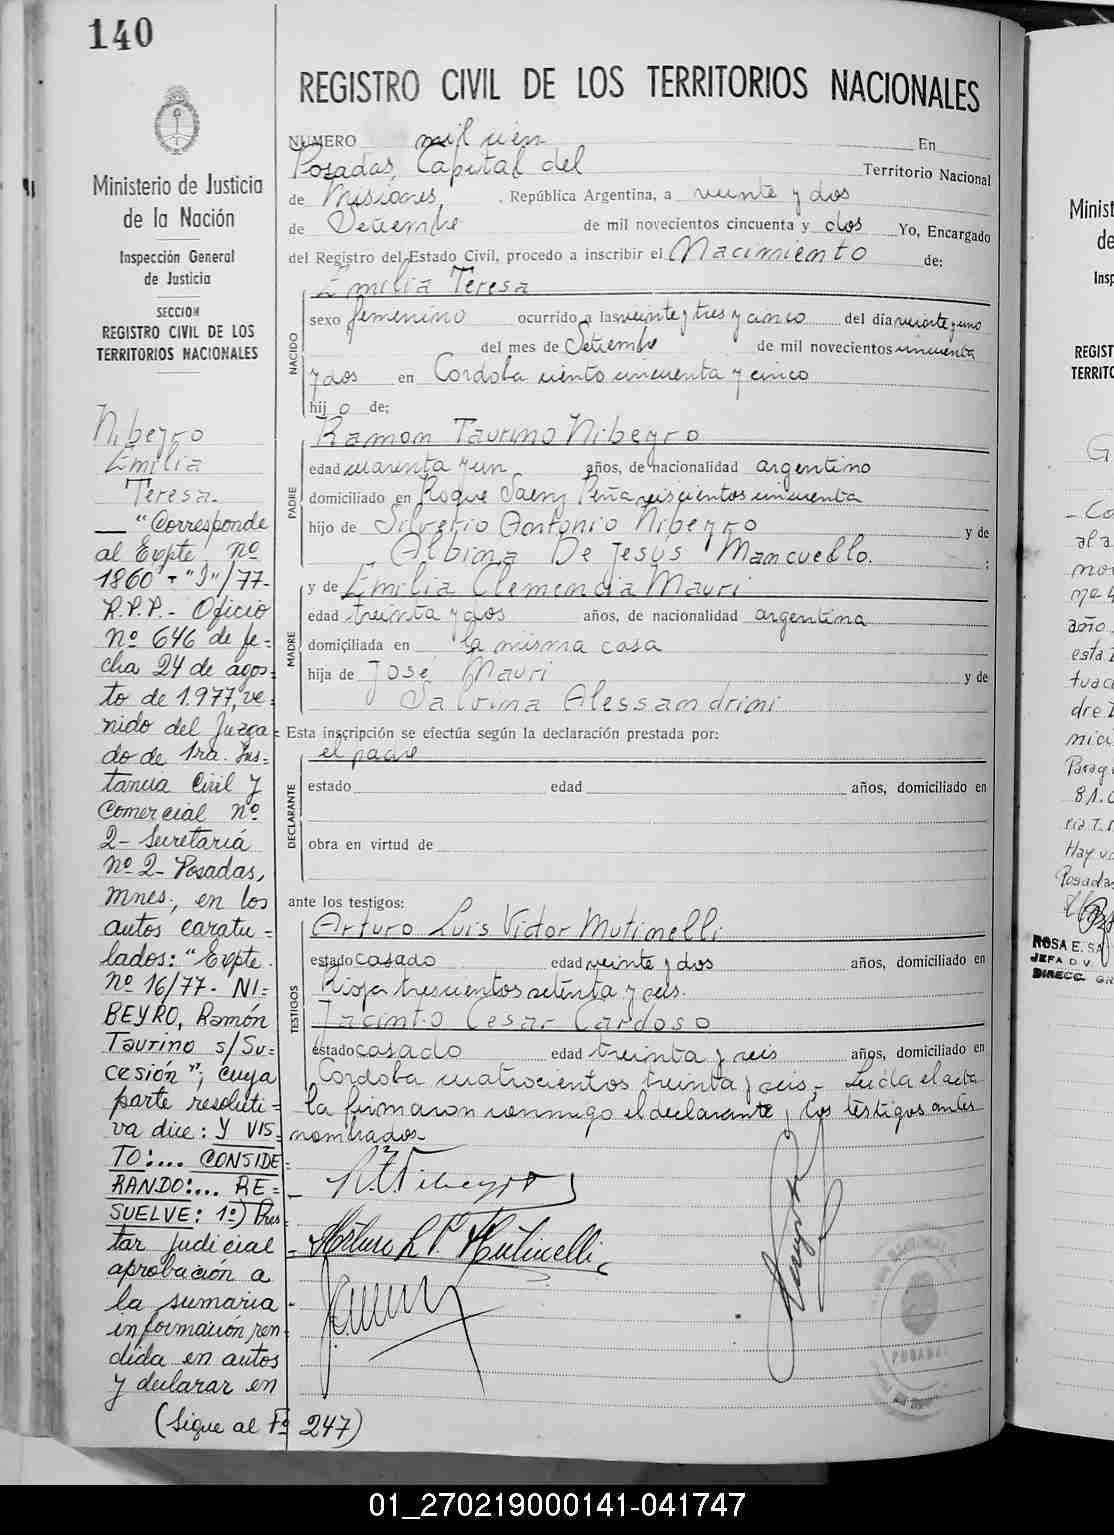 140
Ministerio de Justicia
de la Nación
Inspección General
de Justicia
SECCION
REGISTRO CIVIL DE LOS
TERRITORIOS NACIONALES
Nibeyro
Emilia
Teresa.
— "Corresponde
al Expte. nº
1860 - "J"/77-
R.P.P.- Oficio
Nº 646 de fe=
cha 24 de agos=
to de 1.977, ve=
nido del Juzga=
do de 1ra. Ins=
tancia Civil y
Comercial nº
2- Secretaría
nº 2- Posadas,
Mnes., en los
autos caratu=
lados: "Expte.
nº 16/77- NI=
BEYRO, Ramón
Taurino s/Su=
cesión"; cuya
parte resoluti=
va dice: Y VIS=
TO:... CONSIDE=
RANDO:... RE=
SUELVE: 1º) Pres
tar judicial
aprobación a
la sumaria
información ren=
dida en autos
y declarar en
(sigue al Fº 247)
REGISTRO CIVIL DE LOS TERRITORIOS NACIONALES
NUMERO mil cien En
Posadas, Capital del Territorio Nacional
de Misiones, República Argentina, a veinte y dos
de Setiembre de mil novecientos cincuenta y dos Yo, Encargado
del Registro del Estado Civil, procedo a inscribir el Nacimiento de:
NACIDO
Emilia Teresa
sexo femenino ocurrido a las veinte y tres y cinco del día veinte y uno
del mes de Setiembre de mil novecientos cincuenta
y dos en Cordoba ciento cincuenta y cinco
hij o de;
PADRE
Ramon Taurino Nibeyro
edad cuarenta y un años, de nacionalidad argentino
domiciliado en Roque Saenz Peña seiscientos cincuenta
hijo de Silverio Antonio Nibeyro y de
Albina De Jesús Mancuello. ;
MADRE
y de Emilia Clemencia Mauri
edad treinta y dos años, de nacionalidad argentina
domiciliada en la misma casa
hija de José Mauri y de
Salvina Alessandrini
Esta inscripción se efectúa según la declaración prestada por:
DECLARANTE
el padre
estado edad años, domiciliado en
obra en virtud de
ante los testigos:
TESTIGOS
Arturo Luis Victor Mutinelli
estado casado edad veinte y dos años, domiciliado en
Rioja trescientos setenta y seis.
Jacinto Cesar Cardoso
estado casado edad treinta y seis años, domiciliado en
Cordoba cuatrocientos treinta y seis.- Leida el acta
la firmaron conmigo el declarante y los testigos antes
nombrados.-
R. T. Nibeyro
Arturo L. V. Mutinelli
POSADAS
Minist
de
Insp
REGIST
TERRITO
ROSA E. SA
JEFA DIV.
DIRECC. GR
01_270219000141-041747